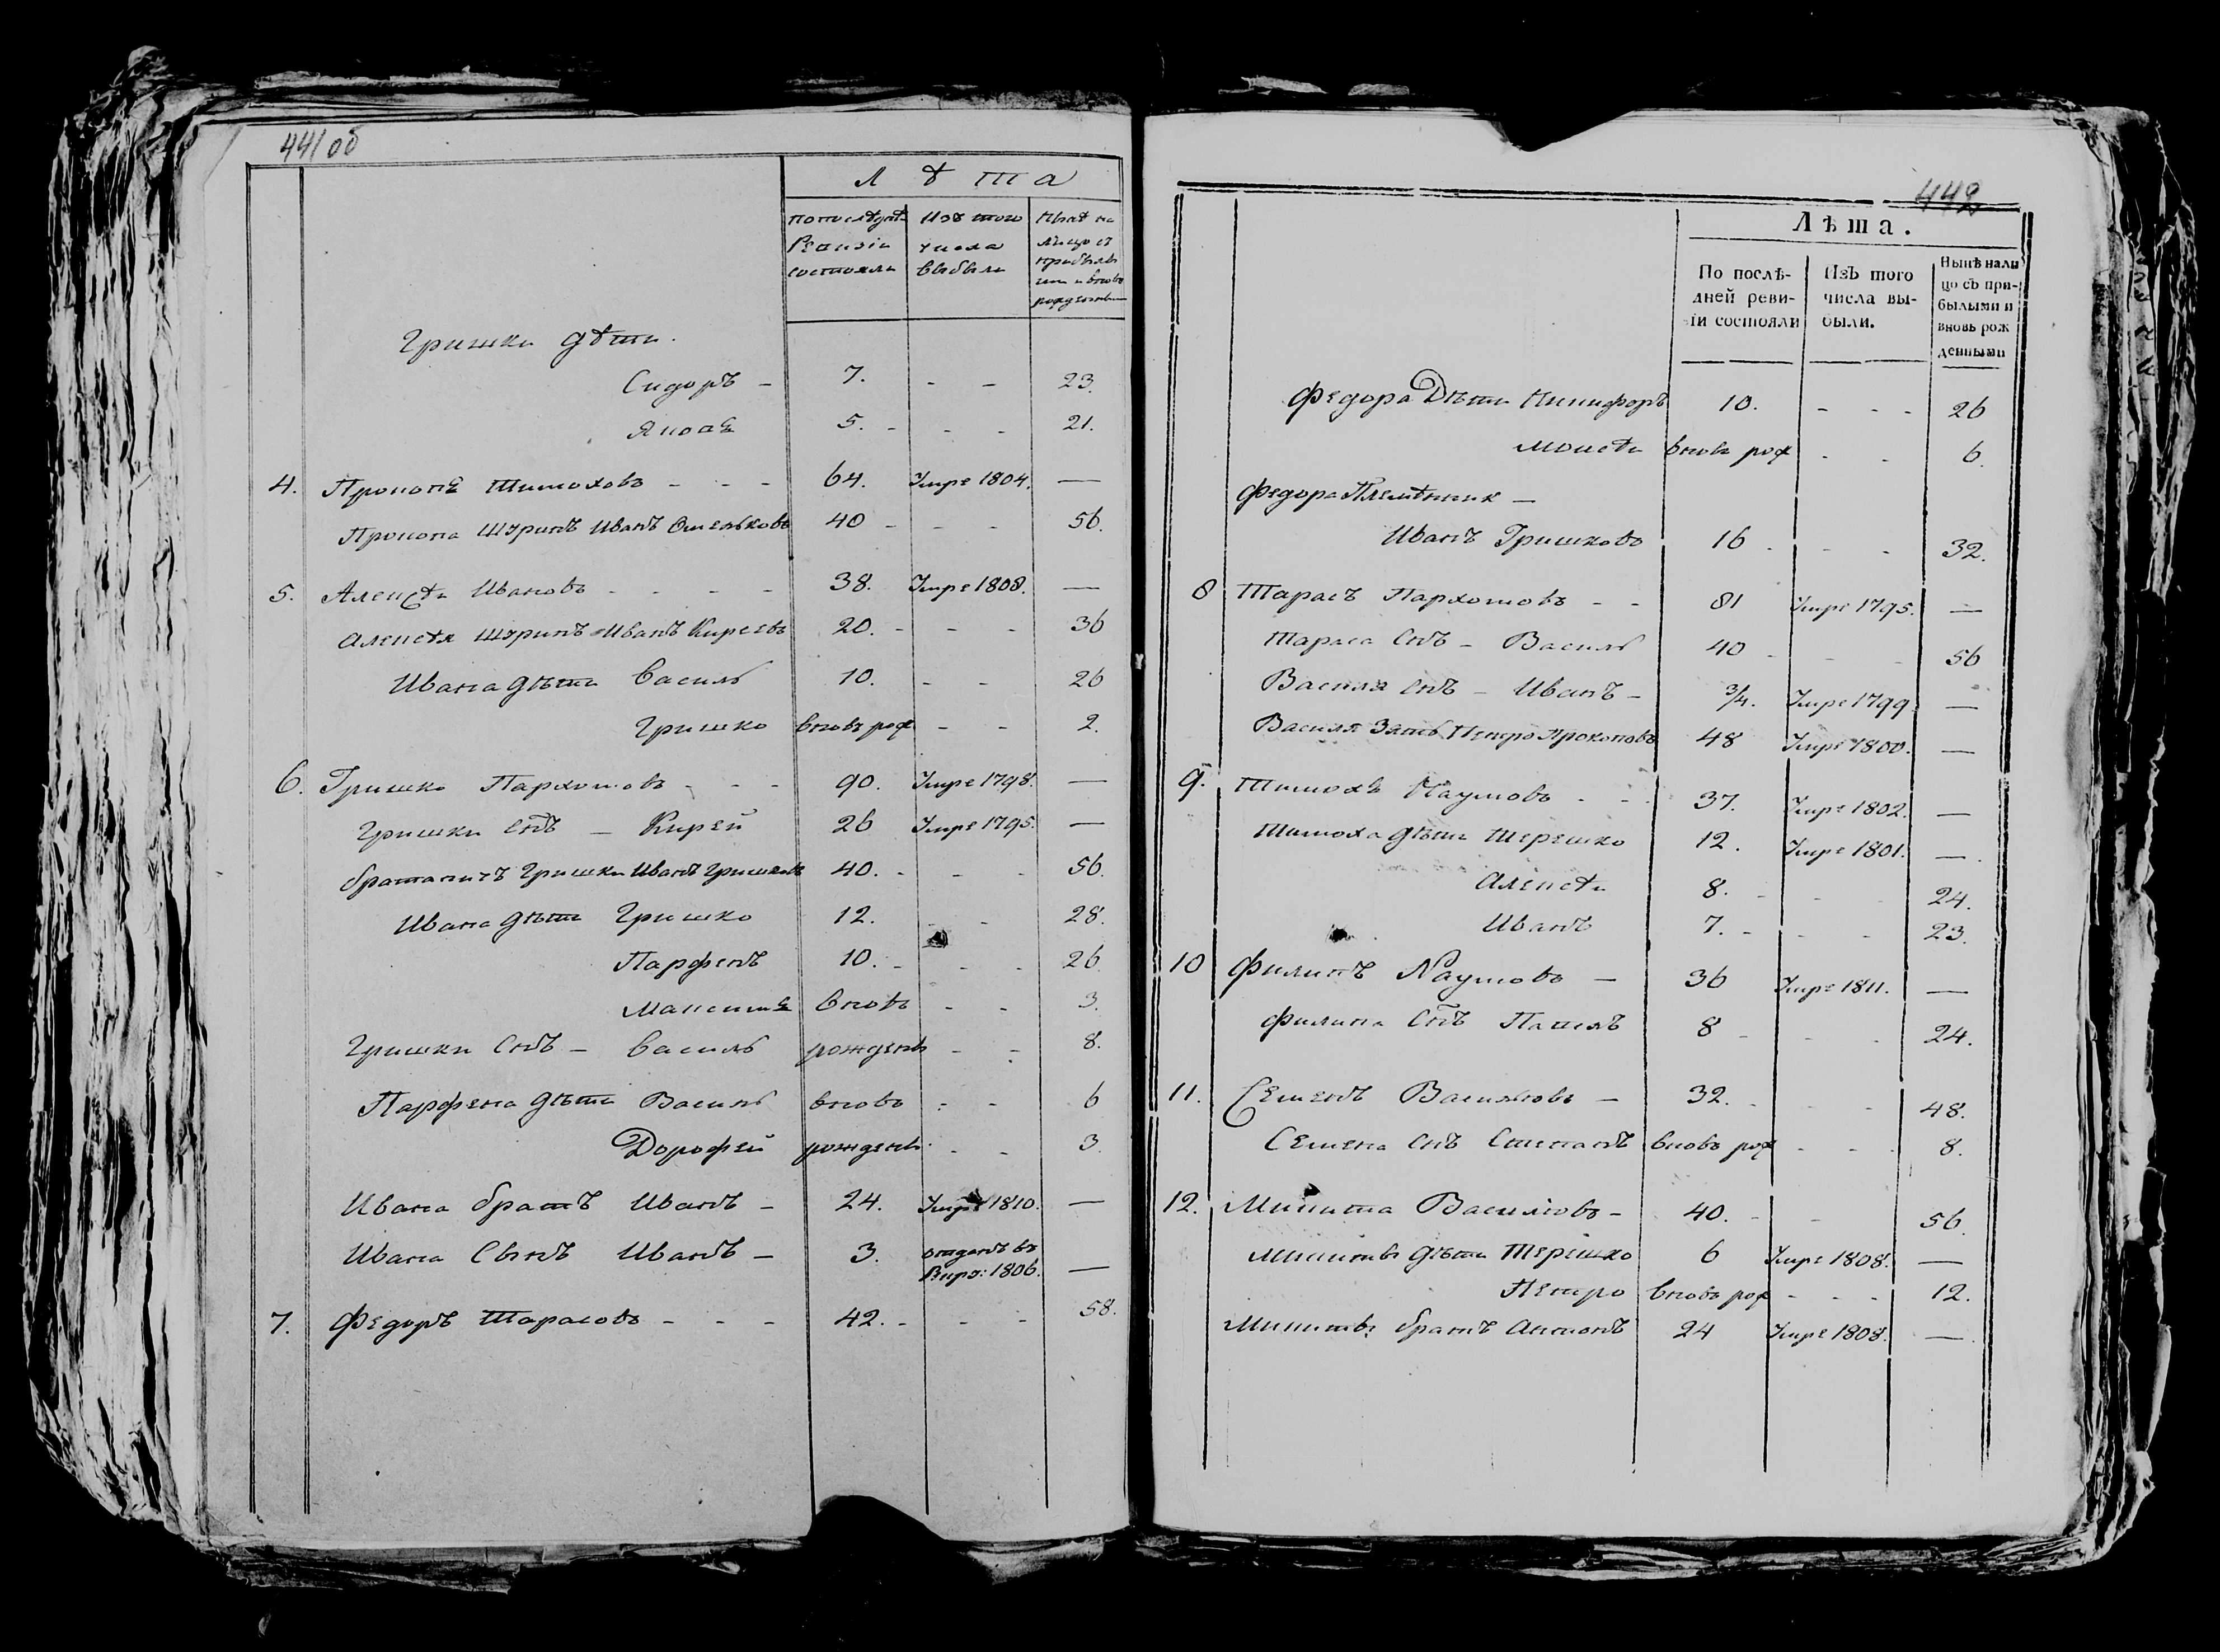 441об
Л ѣ та
по послѣднѣ Изъ того Нынѣ на
Ревизiи числа лицо съ
состояли выбыли прибылы
ми и вновь
рожденными
Гришки дѣти.
Сидоръ - 7. - - 23.
Яковъ 5. - - - 21.
4. Прокопъ Тимоховъ - - - 64. Умре 1804. —
Прокопа Шуринъ Иванъ Омельковъ 40 - - - 56.
5. Алексѣй Ивановъ - - - - 38. Умре 1808. —
Алексѣя Шуринъ Иванъ Киреевъ 20. - - - 36
Ивана дѣти Василь 10. - - 26
Гришко вновь рож - - 2.
6. Гришко Пархомовъ - - - 90. Умре 1798. —
Гришки Снъ — Кирей 26 Умре 1795. —
братаничъ Гришки Иванъ Гришковъ 40. - - - 56.
Ивана дѣти Гришко 12. - - 28.
Парфенъ 10. - - - 26.
Максимъ вновь - - 3.
Гришки Снъ — Василь рожденъ - - 8.
Парфена дѣти Василь вновь - - 6
Дорофей рожденъ. - - 3.
Ивана братъ Иванъ — 24. Умре 1810. —
Ивана Сынъ Иванъ — 3. отданъ въ
Рекр: 1806. —
7. Федоръ Тарасовъ - - - 42. - - - 58.
442
Лѣта.
По послѣ- Изъ того Нынѣ нали
дней реви- числа вы- цо съ при-
зiи состояли были. былыми и
вновь рож
денными
Федора Дѣти Никифоръ 10. - - - 26
Моисѣй вновь рож - - 6.
Федора Племѣнник —
Иванъ Гришковъ 16 . - - 32.
8 Тарасъ Пархомовъ - - 81 Умре 1795. —
Тараса Снъ - Василь 40 - - - 56
Василя Снъ - Иванъ - 3/4. Умре 1799 —
Василя Зять Петро Прокоповъ 48 Умре 1800. —
9. Тимохъ Наумовъ - - 37. Умре 1802. —
Тимоха дѣти Терешко 12. Умре 1801. —
Алексѣй 8. - - - 24.
Иванъ 7. - - - 23.
10 Филипъ Наумовъ — 36 Умре 1811. —
Филипа Снъ Павелъ 8 - - - 24.
11. Семенъ Васильовъ — 32. - - - 48.
Семена Снъ Степанъ вновь рож - - - 8.
12. Микита Васильовъ - 40. - - 56.
Микиты дѣти Терешко 6 Умре 1808. —
Петро вновь рож - - - 12.
Микиты братъ Антонъ 24 Умре 1808. —